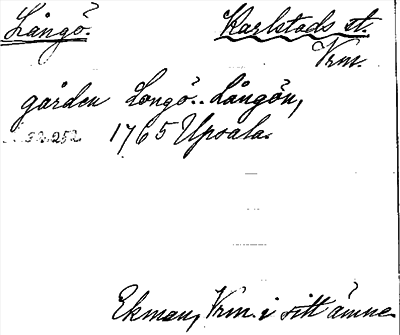 Långö. Karlstads st.
Vrm.
gården Longö.. Långön,
52.252 1765 Upsala.
Ekman, Vrm. i sitt ämne